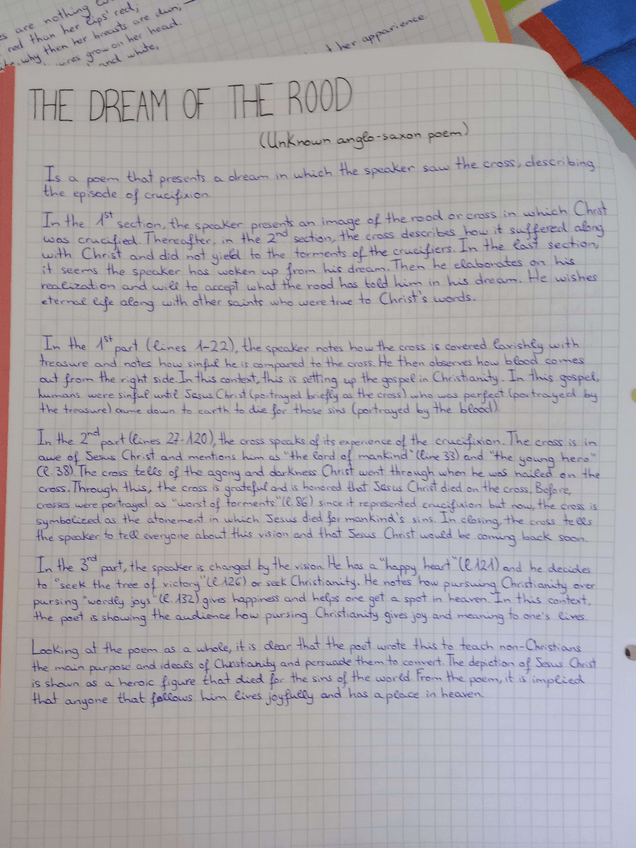 es are nothing
red than her lips' red,
why then her breasts are dun,
wires grow on her head.
and white,
her apparience
THE DREAM OF THE ROOD
(Unknown anglo-saxon poem)
Is a poem that presents a dream in which the speaker saw the cross, describing
the episode of crucifixion
In the 1st section, the speaker presents an image of the rood or cross in which Christ
was crucified. Thereafter, in the 2nd section, the cross describes how it suffered along
with Christ and did not yield to the torments of the crucifiers. In the last section,
it seems the speaker has woken up from his dream. Then he elaborates on his
realization and will to accept what the rood has told him in his dream. He wishes
eternal life along with other saints who were true to Christ's words.
In the 1st part (lines 1-22), the speaker notes how the cross is covered lavishly with
treasure and notes how sinful he is compared to the cross. He then observes how blood comes
out from the right side. In this context, this is setting up the gospel in Christianity. In this gospel,
humans were sinful until Jesus Christ (portrayed briefly as the cross) who was perfect (portrayed by
the treasure) came down to earth to die for those sins (portrayed by the blood)
In the 2nd part (lines 27-120), the cross speaks of its experience of the crucifixion. The cross is in
awe of Jesus Christ and mentions him as "the lord of mankind" (line 33) and "the young hero"
(l. 38) The cross tells of the agony and darkness Christ went through when he was nailed on the
cross. Through this, the cross is grateful and is honored that Jesus Christ died on the cross. Before,
crosses were portrayed as "worst of torments" (l. 86) since it represented crucifixion but now, the cross is
symbolized as the atonement in which Jesus died for mankind's sins. In closing, the cross tells
the speaker to tell everyone about this vision and that Jesus Christ would be coming back soon.
In the 3rd part, the speaker is changed by the vision. He has a "happy heart" (l 121) and he decides
to "seek the tree of victory" (l. 126) or seek Christianity. He notes how pursuing Christianity over
pursing "wordly joys" (l. 132) gives happiness and helps one get a spot in heaven. In this context,
the poet is showing the audience how pursing Christianity gives joy and meaning to one's lives.
Looking at the poem as a whole, it is clear that the poet wrote this to teach non-Christians
the main purpose and ideals of Christianity and persuade them to convert. The depiction of Jesus Christ
is shown as a heroic figure that died for the sins of the world From the poem, it is implied
that anyone that follows him lives joyfully and has a place in heaven.